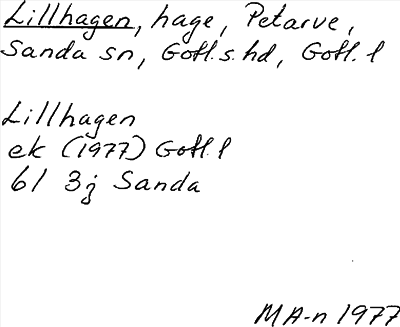 Lillhagen, hage, Petarve,
Sanda sn, Gotl.s.hd, Gotl. l
Lillhagen
ek (1977) Gotl. l
6I 3j Sanda
MA-n 1977